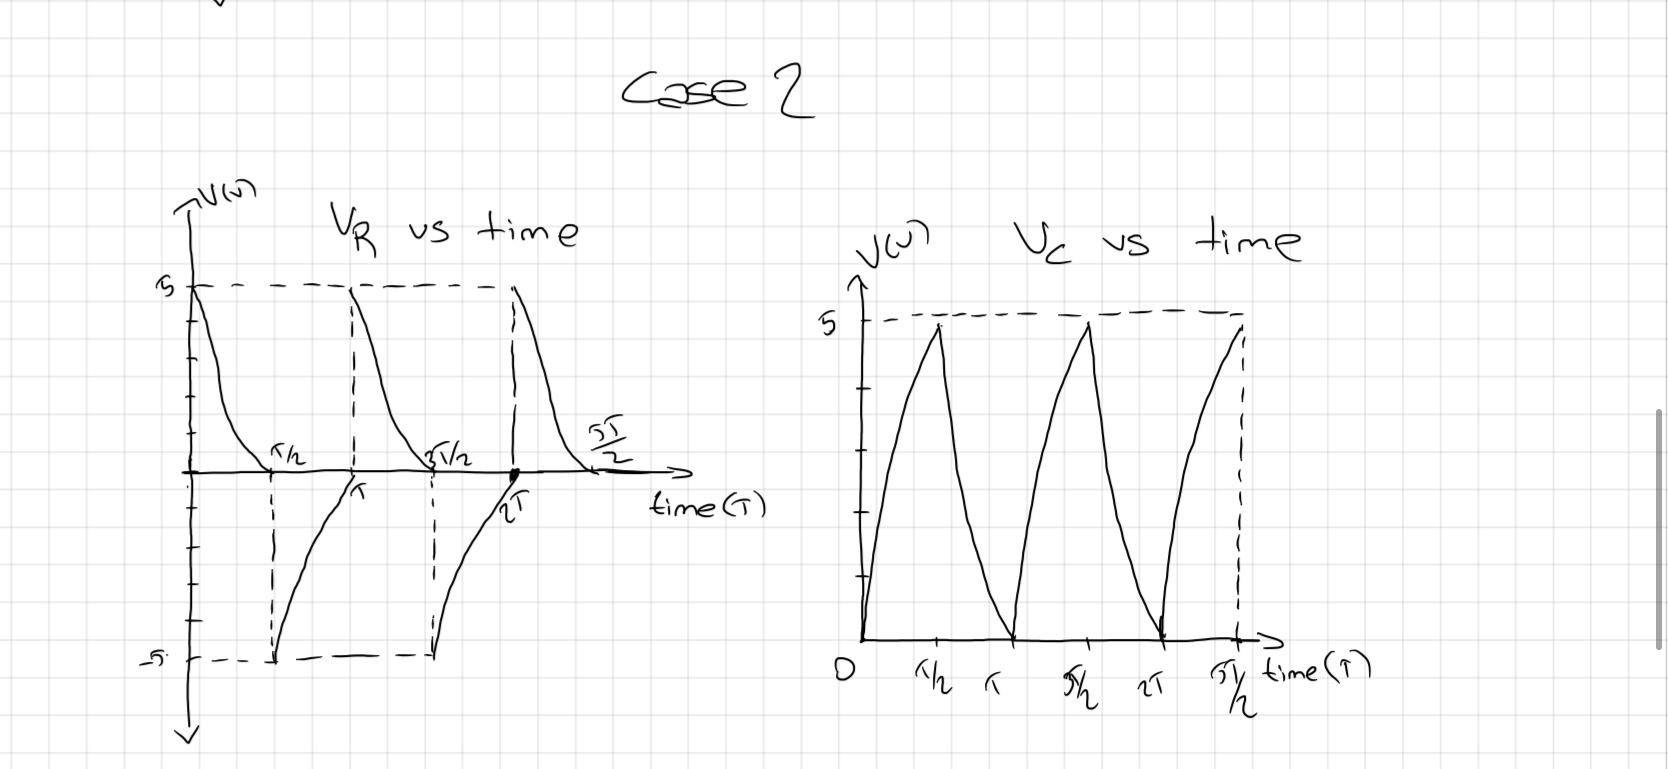 Case 2
V(V)
VR vs time
5
T/2
3T/2
5T/2
T
2T
time(T)
-5
V(V)
VC vs time
5
0
T/2
T
3T/2
2T
5T/2
time(T)